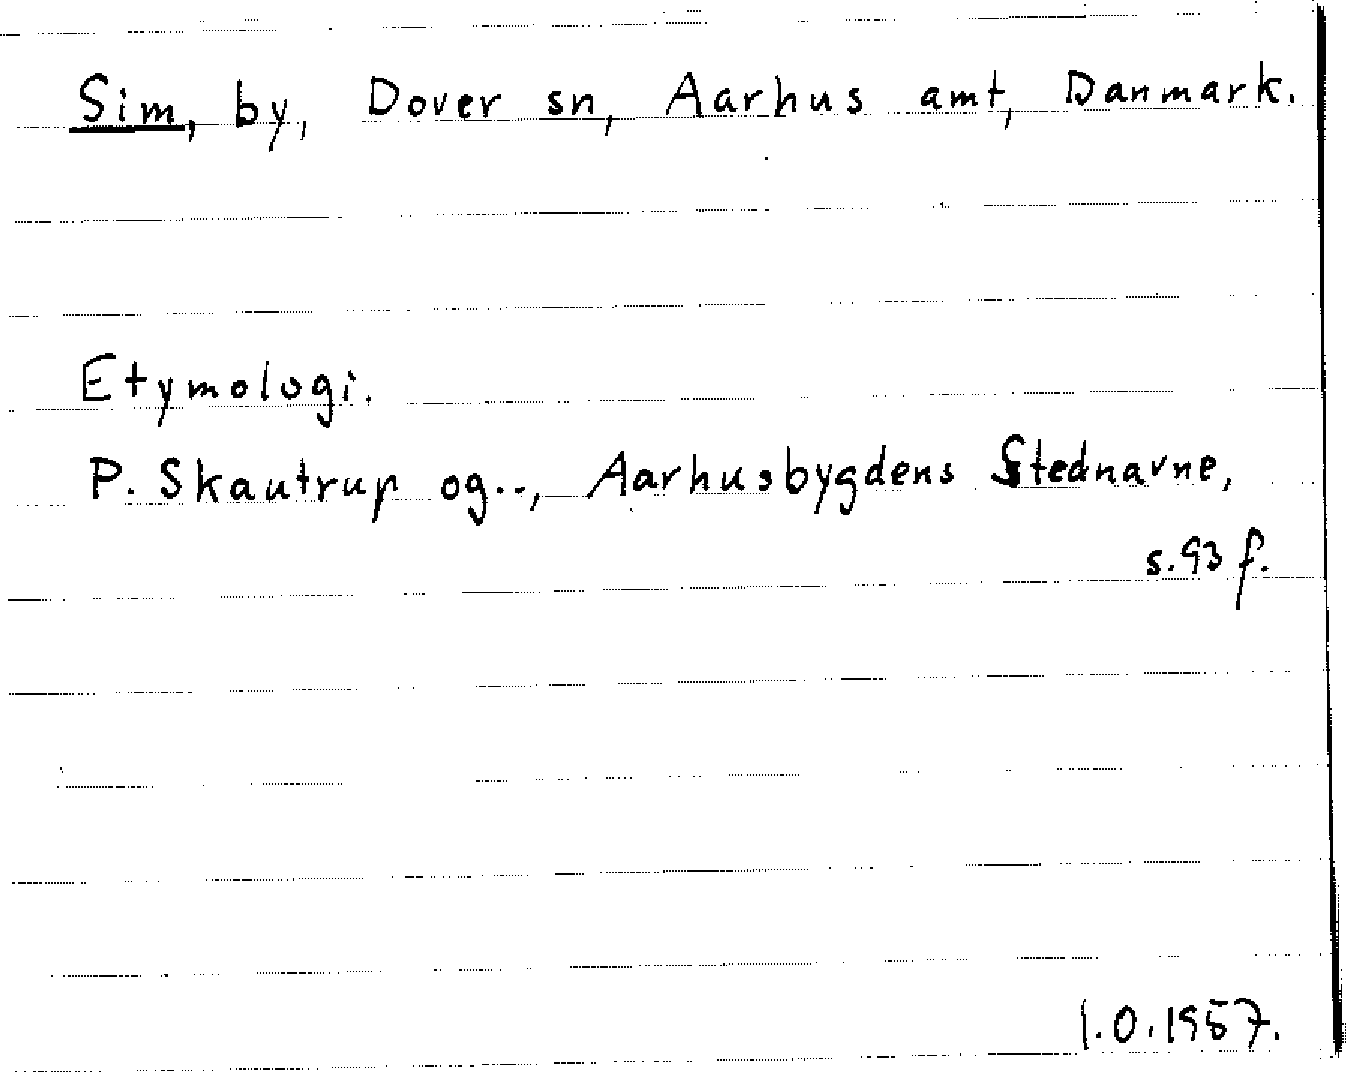 Sim, by, Dover sn, Aarhus amt, Danmark.
Etymologi.
P. Skautrup og.., Aarhusbygdens Stednavne,
s.93 f.
I.O.1957.